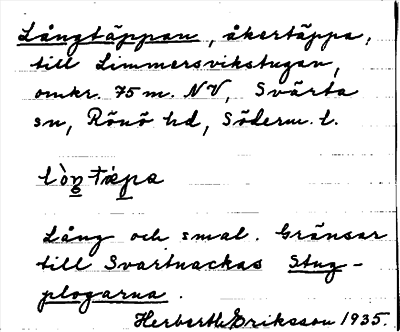 Långtäppan, åkertäppa,
till Limmersvikstugan,
omkr. 75 m. NV, Svärta
sn, Rönö hd, Söderm. l.
Lång och smal. Gränsar
till Svartnackas Stug-
plogarna.
Herbert Eriksson 1935.